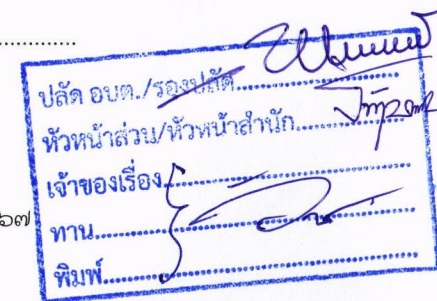 ปลัด อบต./รองปลัด
หัวหน้าส่วน/หัวหน้าสำนัก
เจ้าของเรื่อง
๖๗
ทาน
พิมพ์